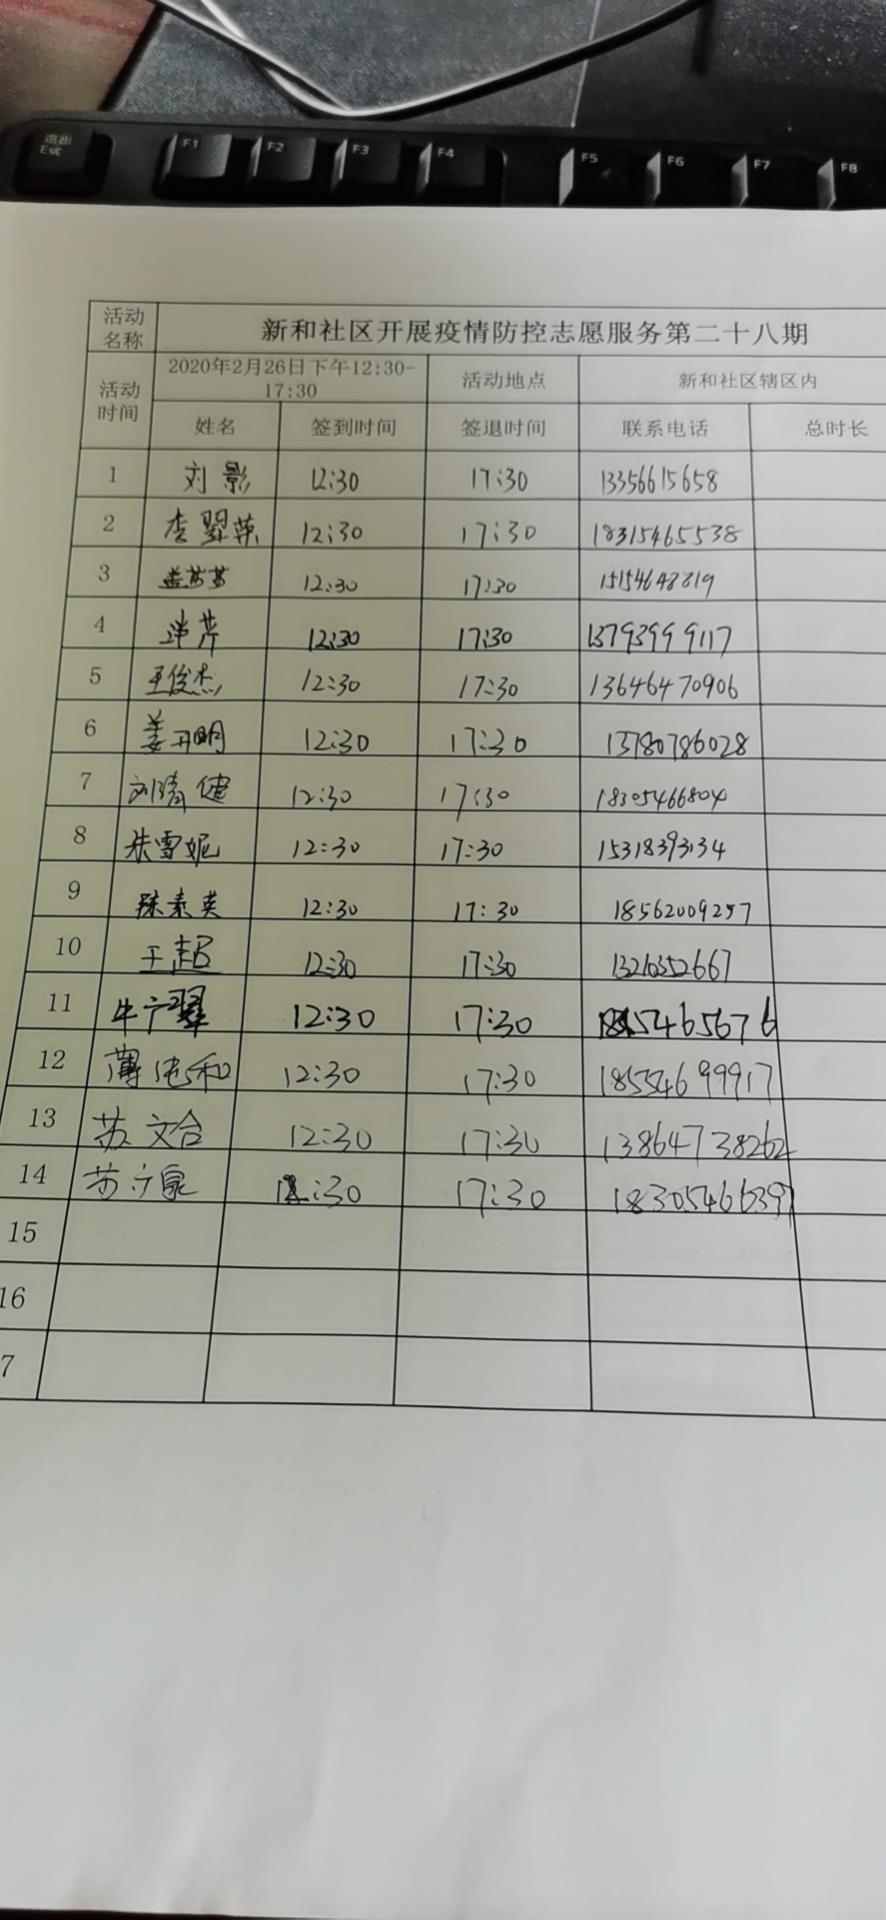 退出
Esc
F1 F2 F3 F4 F5 F6 F7 F8
活动名称 新和社区开展疫情防控志愿服务第二十八期
活动时间 2020年2月26日下午12:30-17:30 活动地点 新和社区辖区内
姓名 签到时间 签退时间 联系电话 总时长
1 刘影 12:30 17:30 13356615658
2 李翠萍 12:30 17:30 18315465538
3 盖苗苗 12:30 17:30 15154648819
4 12:30 17:30 13793999117
5 王俊杰 12:30 17:30 13646470906
6 姜开明 12:30 17:30 13780786028
7 刘清健 12:30 17:30 18305466804
8 朱雪妮 12:30 17:30 15318393134
9 陈素英 12:30 17:30 18562009257
10 王超 12:30 17:30 13210352667
11 牛宁翠 12:30 17:30
12 薄纯和 12:30 17:30 18554699917
13 苏文合 12:30 17:30 13864738262
14 苏宁泉 12:30 17:30 18305466397
15
16
7